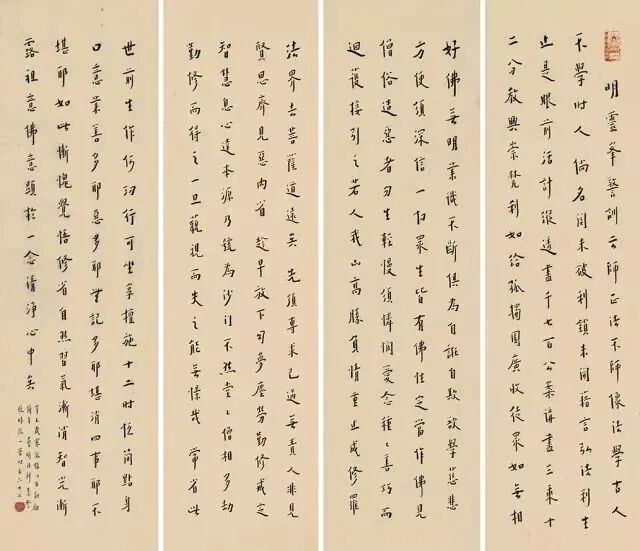 明靈峯警訓云師正法不師像法學古人
不學時人倘名聞未破利鎖未開藉言弘法利生
止是眼前活計縱透盡千七百公案講盡三乘十
二分教興崇梵刹如給孤獨園廣收徒眾如無相
好佛無明業識不斷俱為自誑自欺欲學慈悲
方便須深信一切眾生皆有佛性定當作佛見
僧俗造惡者勿生輕慢須憐憫愛念種々善巧而
迴護接引之若人我山高勝負情重止成修羅
法界去菩薩道遠矣先須專求己過毋責人非見
賢思齊見惡內省趁早放下夢塵勞勤修戒定
智慧息心達本源乃號為沙門不然堂々僧相多劫
勤修而得之一旦藐視而失之能無哉常省此
世前生作何功行可坐享檀施十二時簡點身
口意業善多耶惡多耶無記多耶堪消四事耶不
堪耶如此慚愧覺悟修省自然習氣漸消智光漸
露祖意佛意顯於一念清淨心中矣